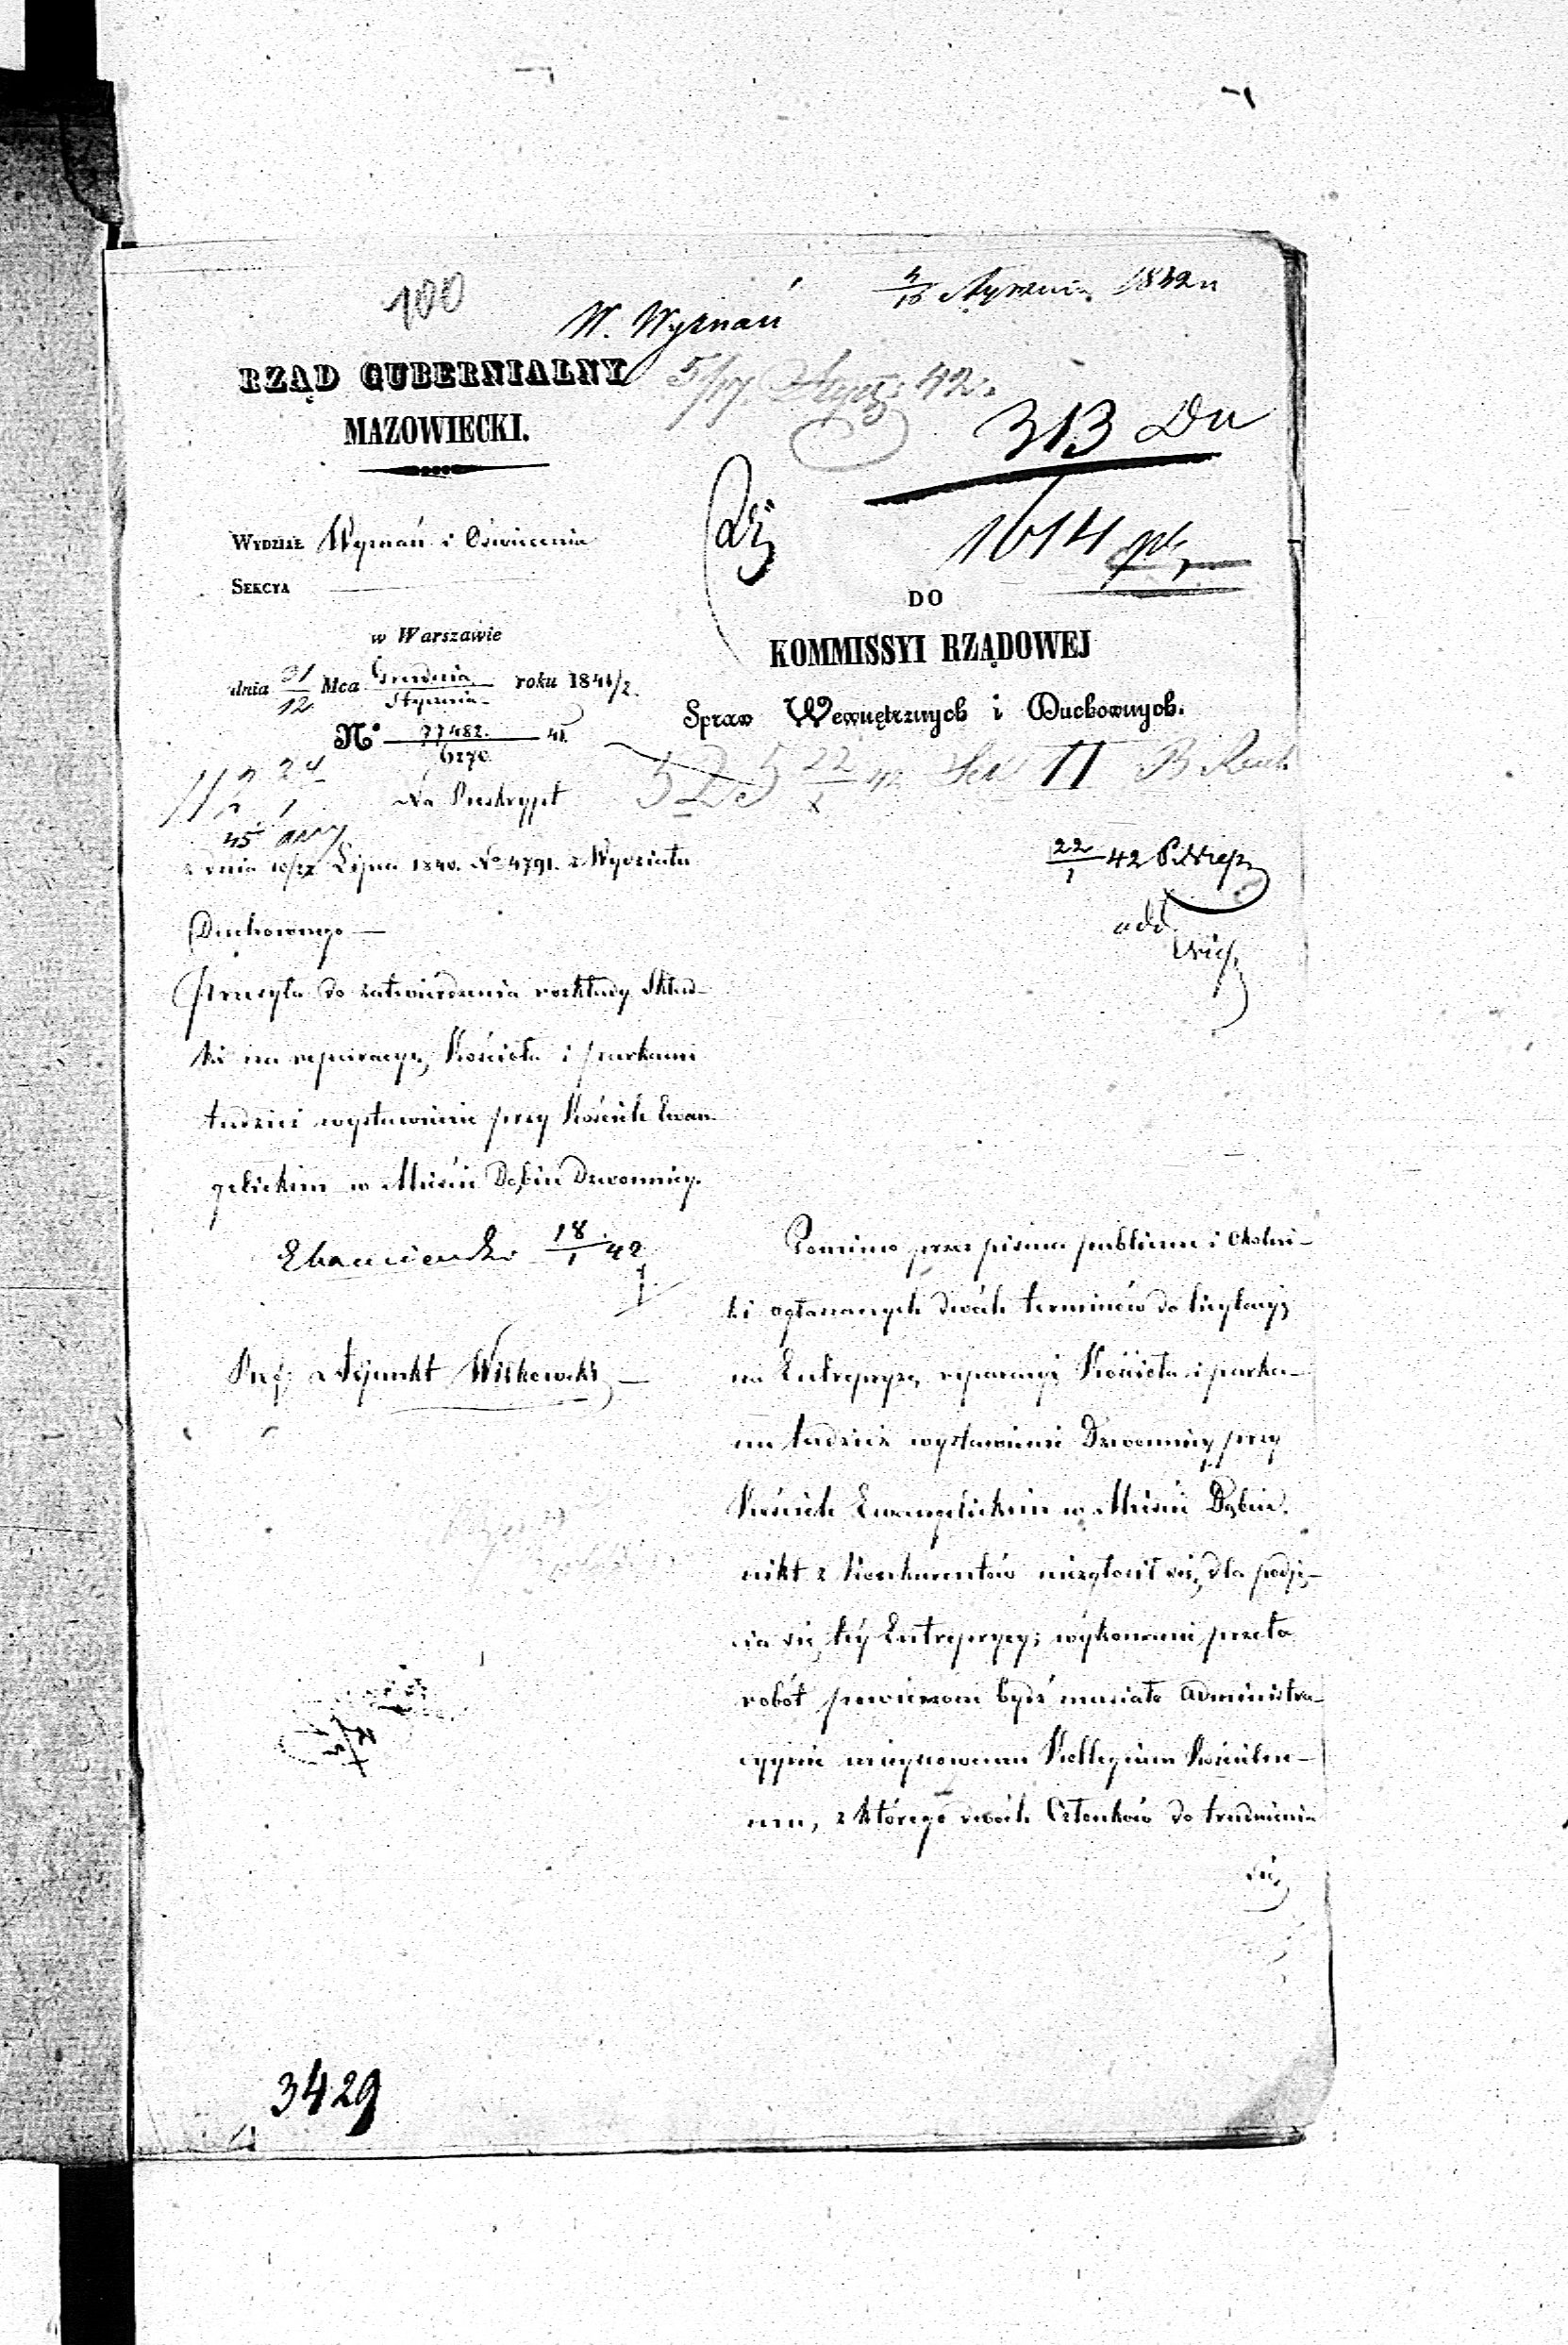 100
W. Wyznań
3/15 Stycznia 1842 r
RZĄD GUBERNIALNY
MAZOWIECKI.
5/17 Stycz: 42.
313 Du
1614
WYDZIAŁ Wyznań i Oświecenia
SEKCYA
w Warszawie
dnia 31/12 Mca Grudnia/Stycznia roku 1841/2.
No 77482./6270. 41.
Na Reskrypt
z dnia 10/22 Lipca 1840. No 4791. z Wydziału
Duchownego —
Przesyła do zatwierdzenia rozkłady Skład-
ki na reparacyę Kościoła i parkanu
tudzież wystawienie przy Kościele Ewan-
gelickim w Mieście Dąbiu Dzwonnicy.
18/1 42
Ref: Adjunkt Witkowski —
DO
KOMMISSYI RZĄDOWEJ
Spraw Wewnętrznych i Duchownych.
22/1 42 Sek II
22/1 42
Pomimo przez pisma publiczne i Okolni-
ki ogłaszanych dwóch terminów do licytacyi
na Entrepryzę reparacyi Kościoła i parka-
nu tudzież wystawienie Dzwonnicy przy
Kościele Ewangelickim w Mieście Dąbiu,
nikt z konkurentów niezgłosił się, dla podję-
cia się téj Entrepryzy; wykonanie przeto
robót powierzone bydź musiało administra-
cyjnie miejscowemu Kollegium Kościelne-
mu, z którego dwóch Członków do trudnienia
się
3429